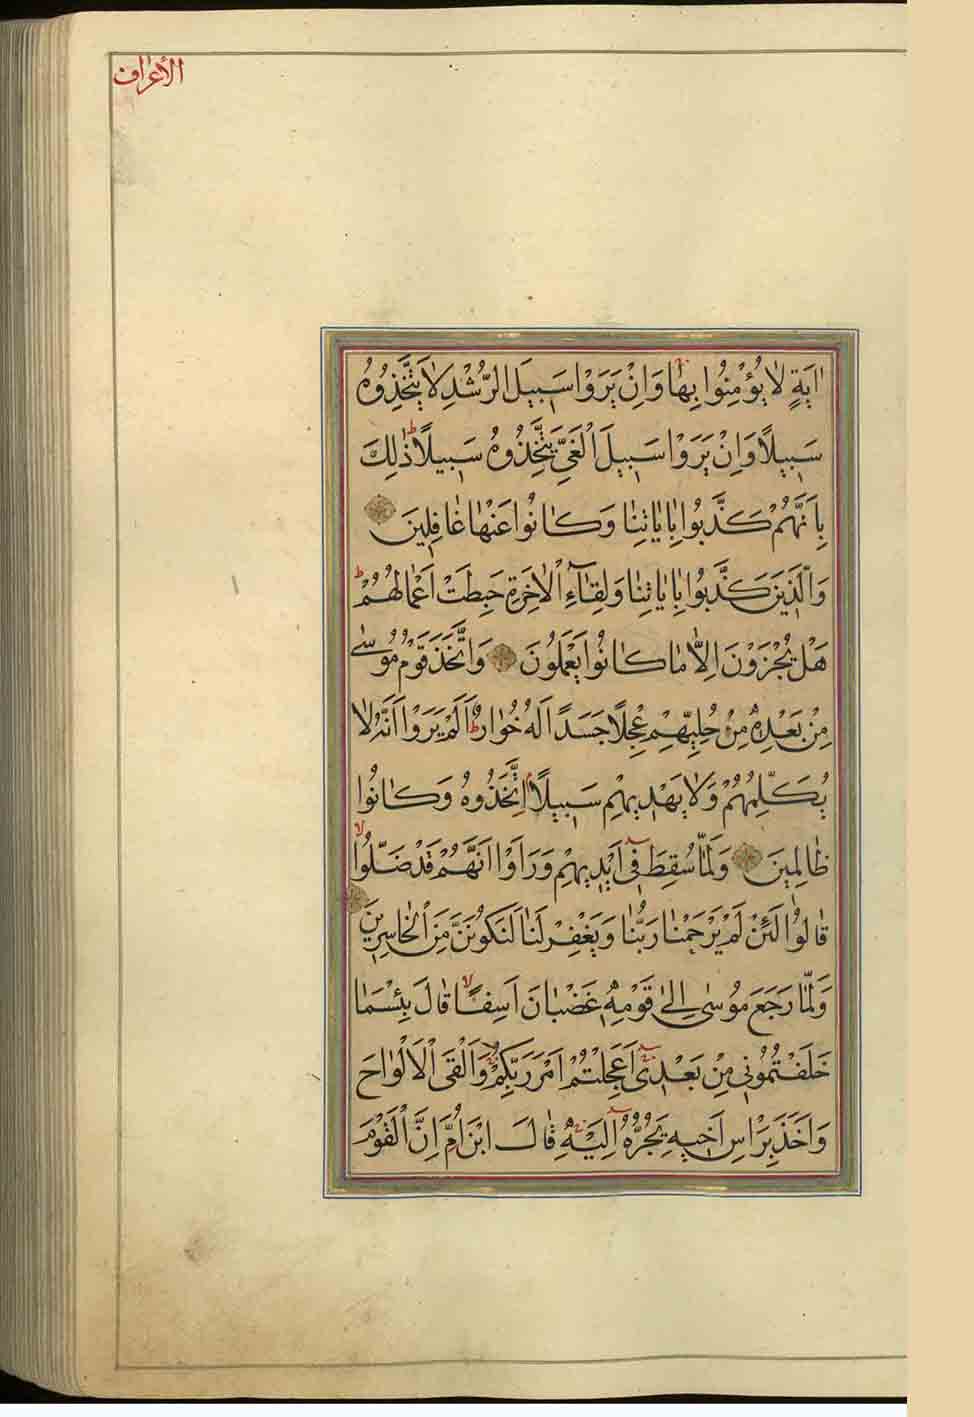 الأعراف
اٰيَةٍ لَا يُؤْمِنُوا بِهَا وَاِنْ يَرَوْا سَبِيلَ الرُّشْدِ لَا يَتَّخِذُوهُ
سَبِيلًا وَاِنْ يَرَوْا سَبِيلَ الْغَيِّ يَتَّخِذُوهُ سَبِيلًا ط ذٰلِكَ
بِاَنَّهُمْ كَذَّبُوا بِاٰيَاتِنَا وَكَانُوا عَنْهَا غَافِلِينَ
وَالَّذِينَ كَذَّبُوا بِاٰيَاتِنَا وَلِقَاءِ الْاٰخِرَةِ حَبِطَتْ اَعْمَالُهُمْ ط
هَلْ يُجْزَوْنَ اِلَّا مَا كَانُوا يَعْمَلُونَ وَاتَّخَذَ قَوْمُ مُوسٰى
مِنْ بَعْدِهٖ مِنْ حُلِيِّهِمْ عِجْلًا جَسَدًا لَهُ خُوَارٌ ط اَلَمْ يَرَوْا اَنَّهُ لَا
يُكَلِّمُهُمْ وَلَا يَهْدِيهِمْ سَبِيلًا اِتَّخَذُوهُ وَكَانُوا
ظَالِمِينَ وَلَمَّا سُقِطَ فِى اَيْدِيهِمْ وَرَاَوْا اَنَّهُمْ قَدْ ضَلُّوا لا
قَالُوا لَئِنْ لَمْ يَرْحَمْنَا رَبُّنَا وَيَغْفِرْ لَنَا لَنَكُونَنَّ مِنَ الْخَاسِرِينَ
وَلَمَّا رَجَعَ مُوسٰى اِلٰى قَوْمِهٖ غَضْبَانَ اَسِفًا لا قَالَ بِئْسَمَا
خَلَفْتُمُونِى مِنْ بَعْدِى اَعَجِلْتُمْ اَمْرَ رَبِّكُمْ وَاَلْقَى الْاَلْوَاحَ
وَاَخَذَ بِرَاْسِ اَخِيهِ يَجُرُّهُ اِلَيْهِ قَالَ ابْنَ اُمَّ اِنَّ الْقَوْمَ